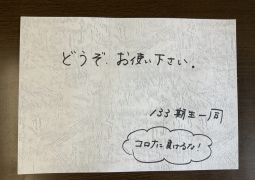 どうぞ、お使い下さい。
133期生一同
コロナに負けるな！